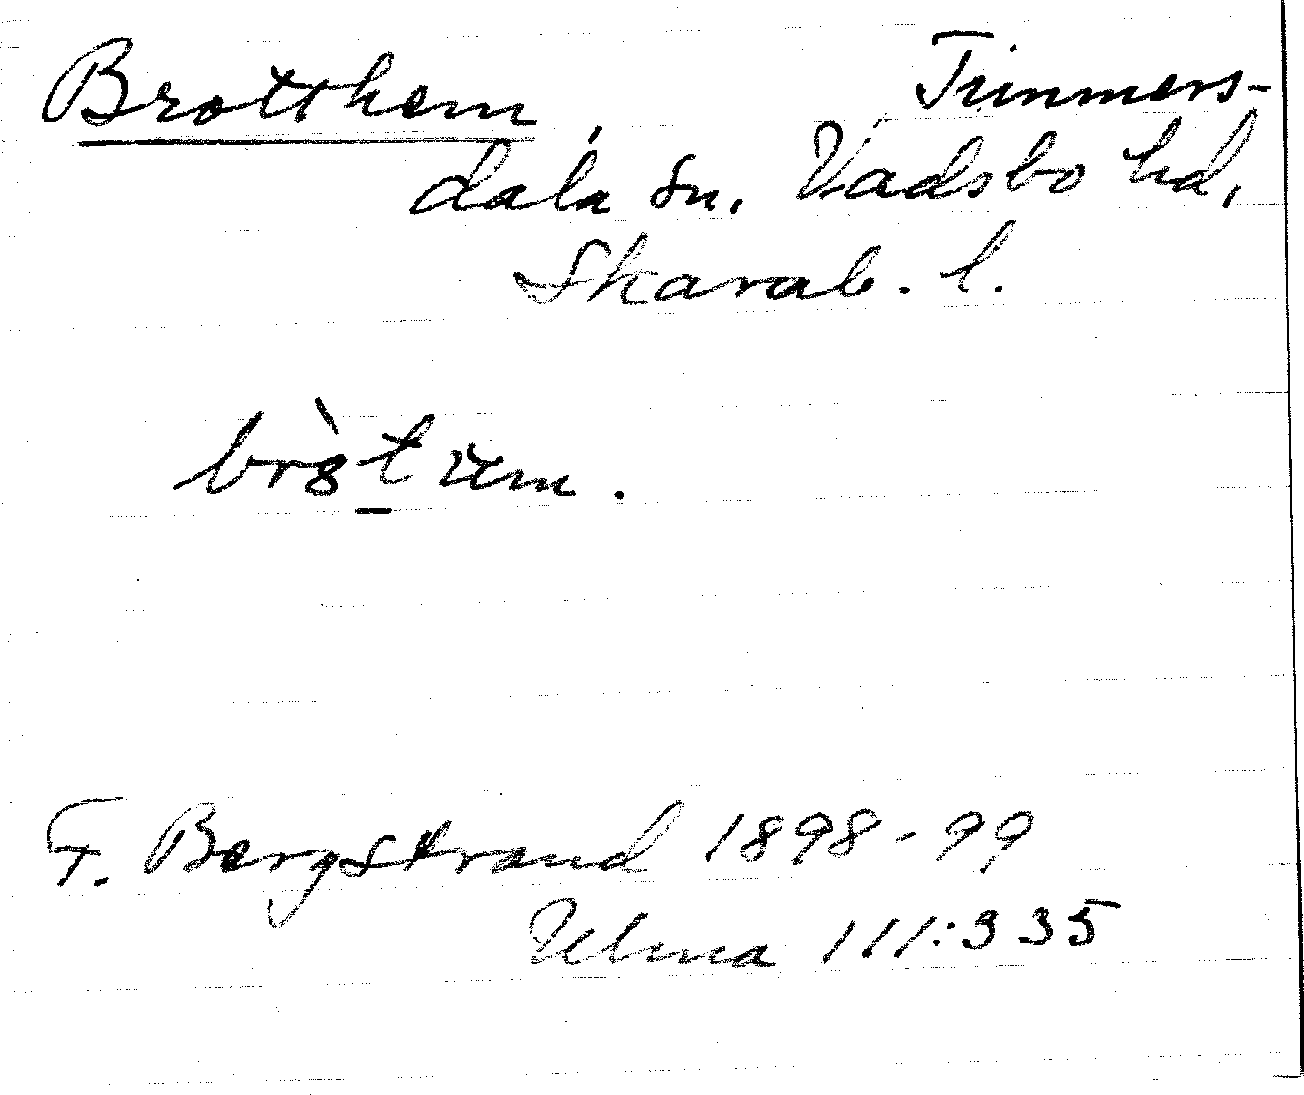 Brotthem, Timmers-
dala sn. Vadsbo hd,
Skarab. l.
F. Bergstrand 1898-99
Ulma 111:335